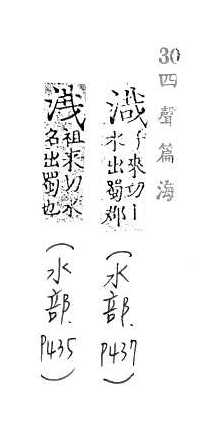 30 四聲篇海
來切｜
水出蜀郡
(水部. P437)
祖來切水
名出蜀也
(水部. P435)